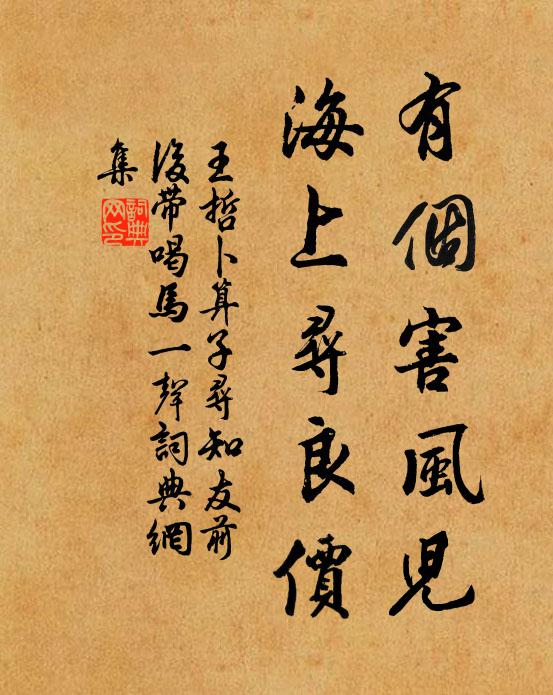 有個害風児
海上尋良價
王哲卜算子尋知友前
後帶喝馬一聲詞典網
集
詞典
网印